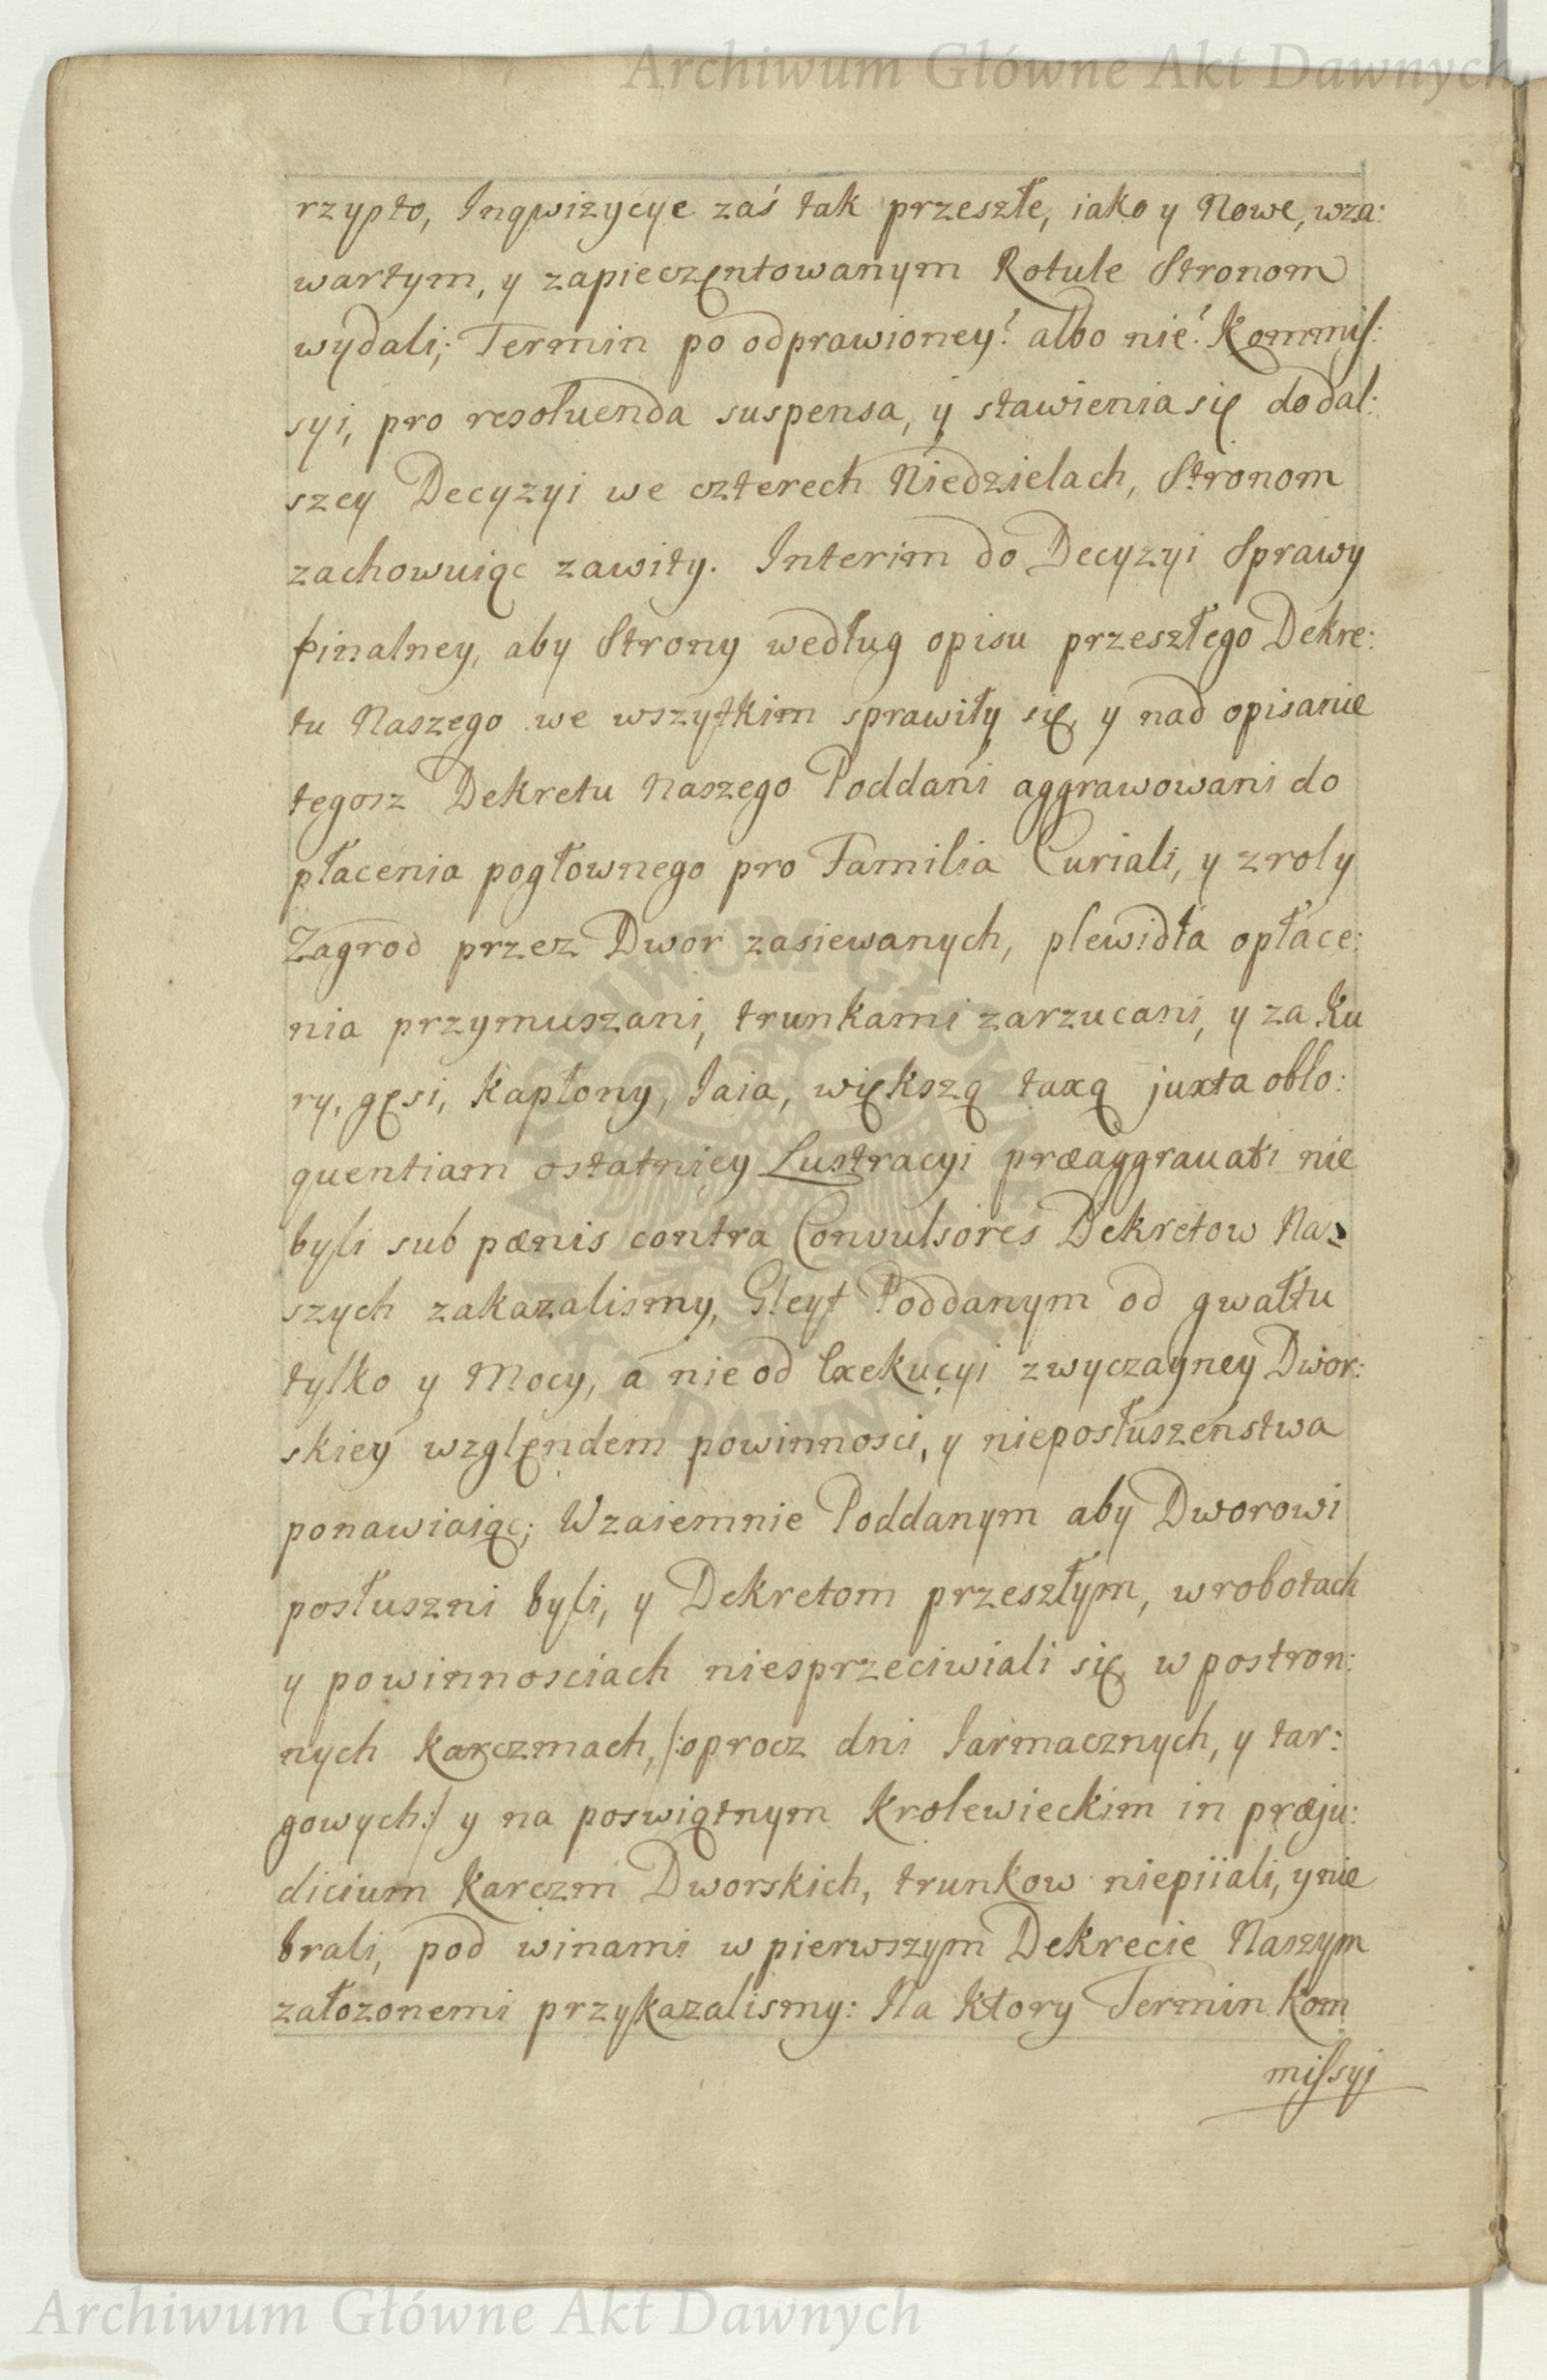 Archiwum Główne Akt Dawnych
rzypto, Inqwizycye zaś tak przeszłe, iako y Nowe, wza:
wartym, y zapieczęntowanym Rotule Stronom
wydali; Termin po odprawioney? albo nié? Kommis:
syi, pro resoluenda suspensa, y stawienia się do dal:
szey Decyzyi we czterech Niedzielach, Stronom
zachowuiąc zawity. Interim do Decyzyi Sprawy
finalney, aby Strony według opisu przeszłego Dekre:
tu Naszego we wszytkim sprawiły się, y nad opisanie
tegosz Dekretu Naszego Poddani aggrawowani do
płacenia pogłownego pro Familia Curiali, y z roly
Zagrod przez Dwor zasiewanych, plewidła opłace:
nia przymuszani, trunkami zarzucani, y za Ku
ry, gęsi, Kapłony, Iaia, większą taxą juxta oblo:
quentiam ostatniey Lustracyi præaggrauati nie
byli sub pænis contra Convulsores Dekretow Na:
szych zakazalismy, Gleyt Poddanym od gwałtu
tylko y Mocy, a nie od Exekucyi zwyczayney Dwor:
skiey względem powinnosci, y nieposłuszeństwa
ponawiaiąc; Wzaiemnie Poddanym aby Dworowi
posłuszni byli, y Dekretom przeszłym, w robotach
y powinnosciach niesprzeciwiali się, w postron:
nych Karczmach, /:oprocz dni Iarmacznych, y tar:
gowych:/ y na poswiątnym Krolewieckim in præju:
dicium Karczm Dworskich, trunkow niepiiali, y nie
brali, pod winami w pierwszym Dekrecie Naszym
załozonemi przykazalismy: Na Ktory Termin Kom
missyi
Archiwum Główne Akt Dawnych